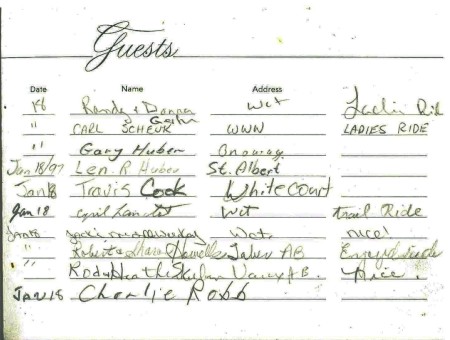 Guests
Date Name Address
18 Randy & Donna Wct Ladies Ride
" CARL SCHENK WWN LADIES RIDE
" Gary Huber Onoway
Jan 18/97 Len. R Huber St. Albert
Jan 18 Travis Cook Whitecourt
Jan 18 Cyril Wct trail Ride
Jan 18 Wct. nice!
" Robert & Taber AB
" Rod & Heather AB. Nice.
JAN 18 Charlie Robb